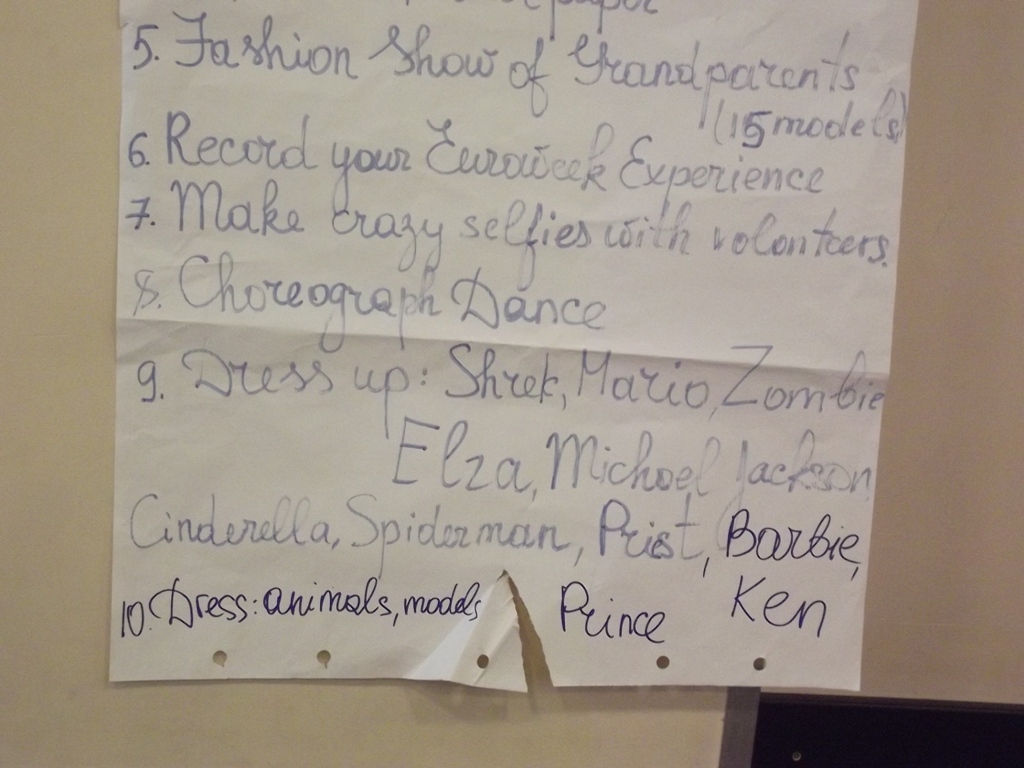 paper
5. Fashion Show of Grandparents
(15 models)
6. Record your Euroweek Experience
7. Make crazy selfies with volonteers.
8. Choreograph Dance
9. Dress up: Shrek, Mario, Zombie
Elza, Michael Jackson,
Cinderella, Spiderman, Prist, Barbie,
10. Dress: animals, models Prince Ken